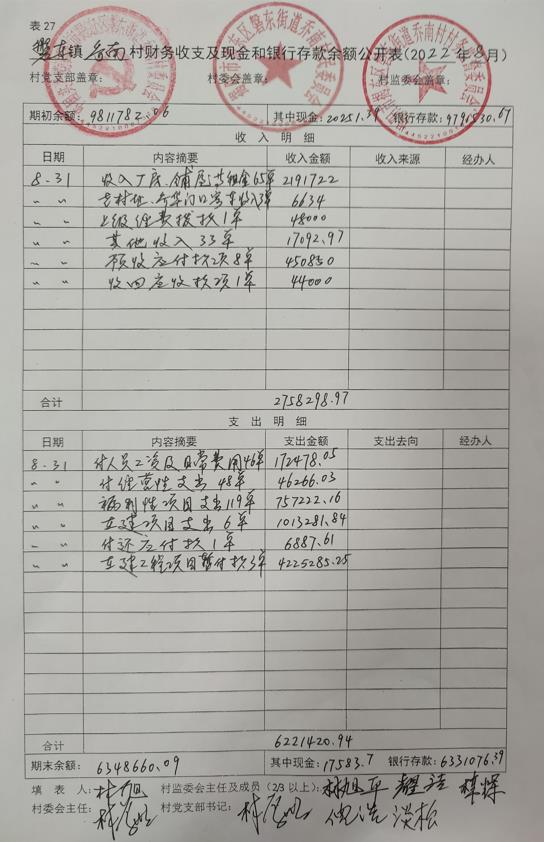 表 27
磐东镇乔南村财务收支及现金和银行存款余额公开表(2022年8月)
村党支部盖章: 村委会盖章: 村监委会盖章:
期初余额: 9811782.06 其中现金: 20251.39 银行存款: 9791530.67
收 入 明 细
日期 内容摘要 收入金额 收入来源 经办人
8.31 收入厂房、铺屋等租金65单 2191722
〃 〃 6634
〃 〃 上级经费拨款1单 48000
〃 〃 其他收入33单 17092.97
〃 〃 预收应付款项8单 450850
〃 〃 收回应收款项1单 44000
合计 2758298.97
支 出 明 细
日期 内容摘要 支出金额 支出去向 经办人
8.31 付人员工资及日常费用46单 172478.05
〃 〃 付经营性支出48单 46266.03
〃 〃 福利性项目支出119单 757222.16
〃 〃 在建项目支出6单 1013281.84
〃 〃 付还应付款1单 6887.61
〃 〃 在建工程项目暂付款3单 4225285.25
合计 6221420.94
期末余额: 6348660.09 其中现金: 17583.7 银行存款: 6331076.39
填 表 人: 村监委会主任及成员(2/3以上):
村委会主任: 村党支部书记: